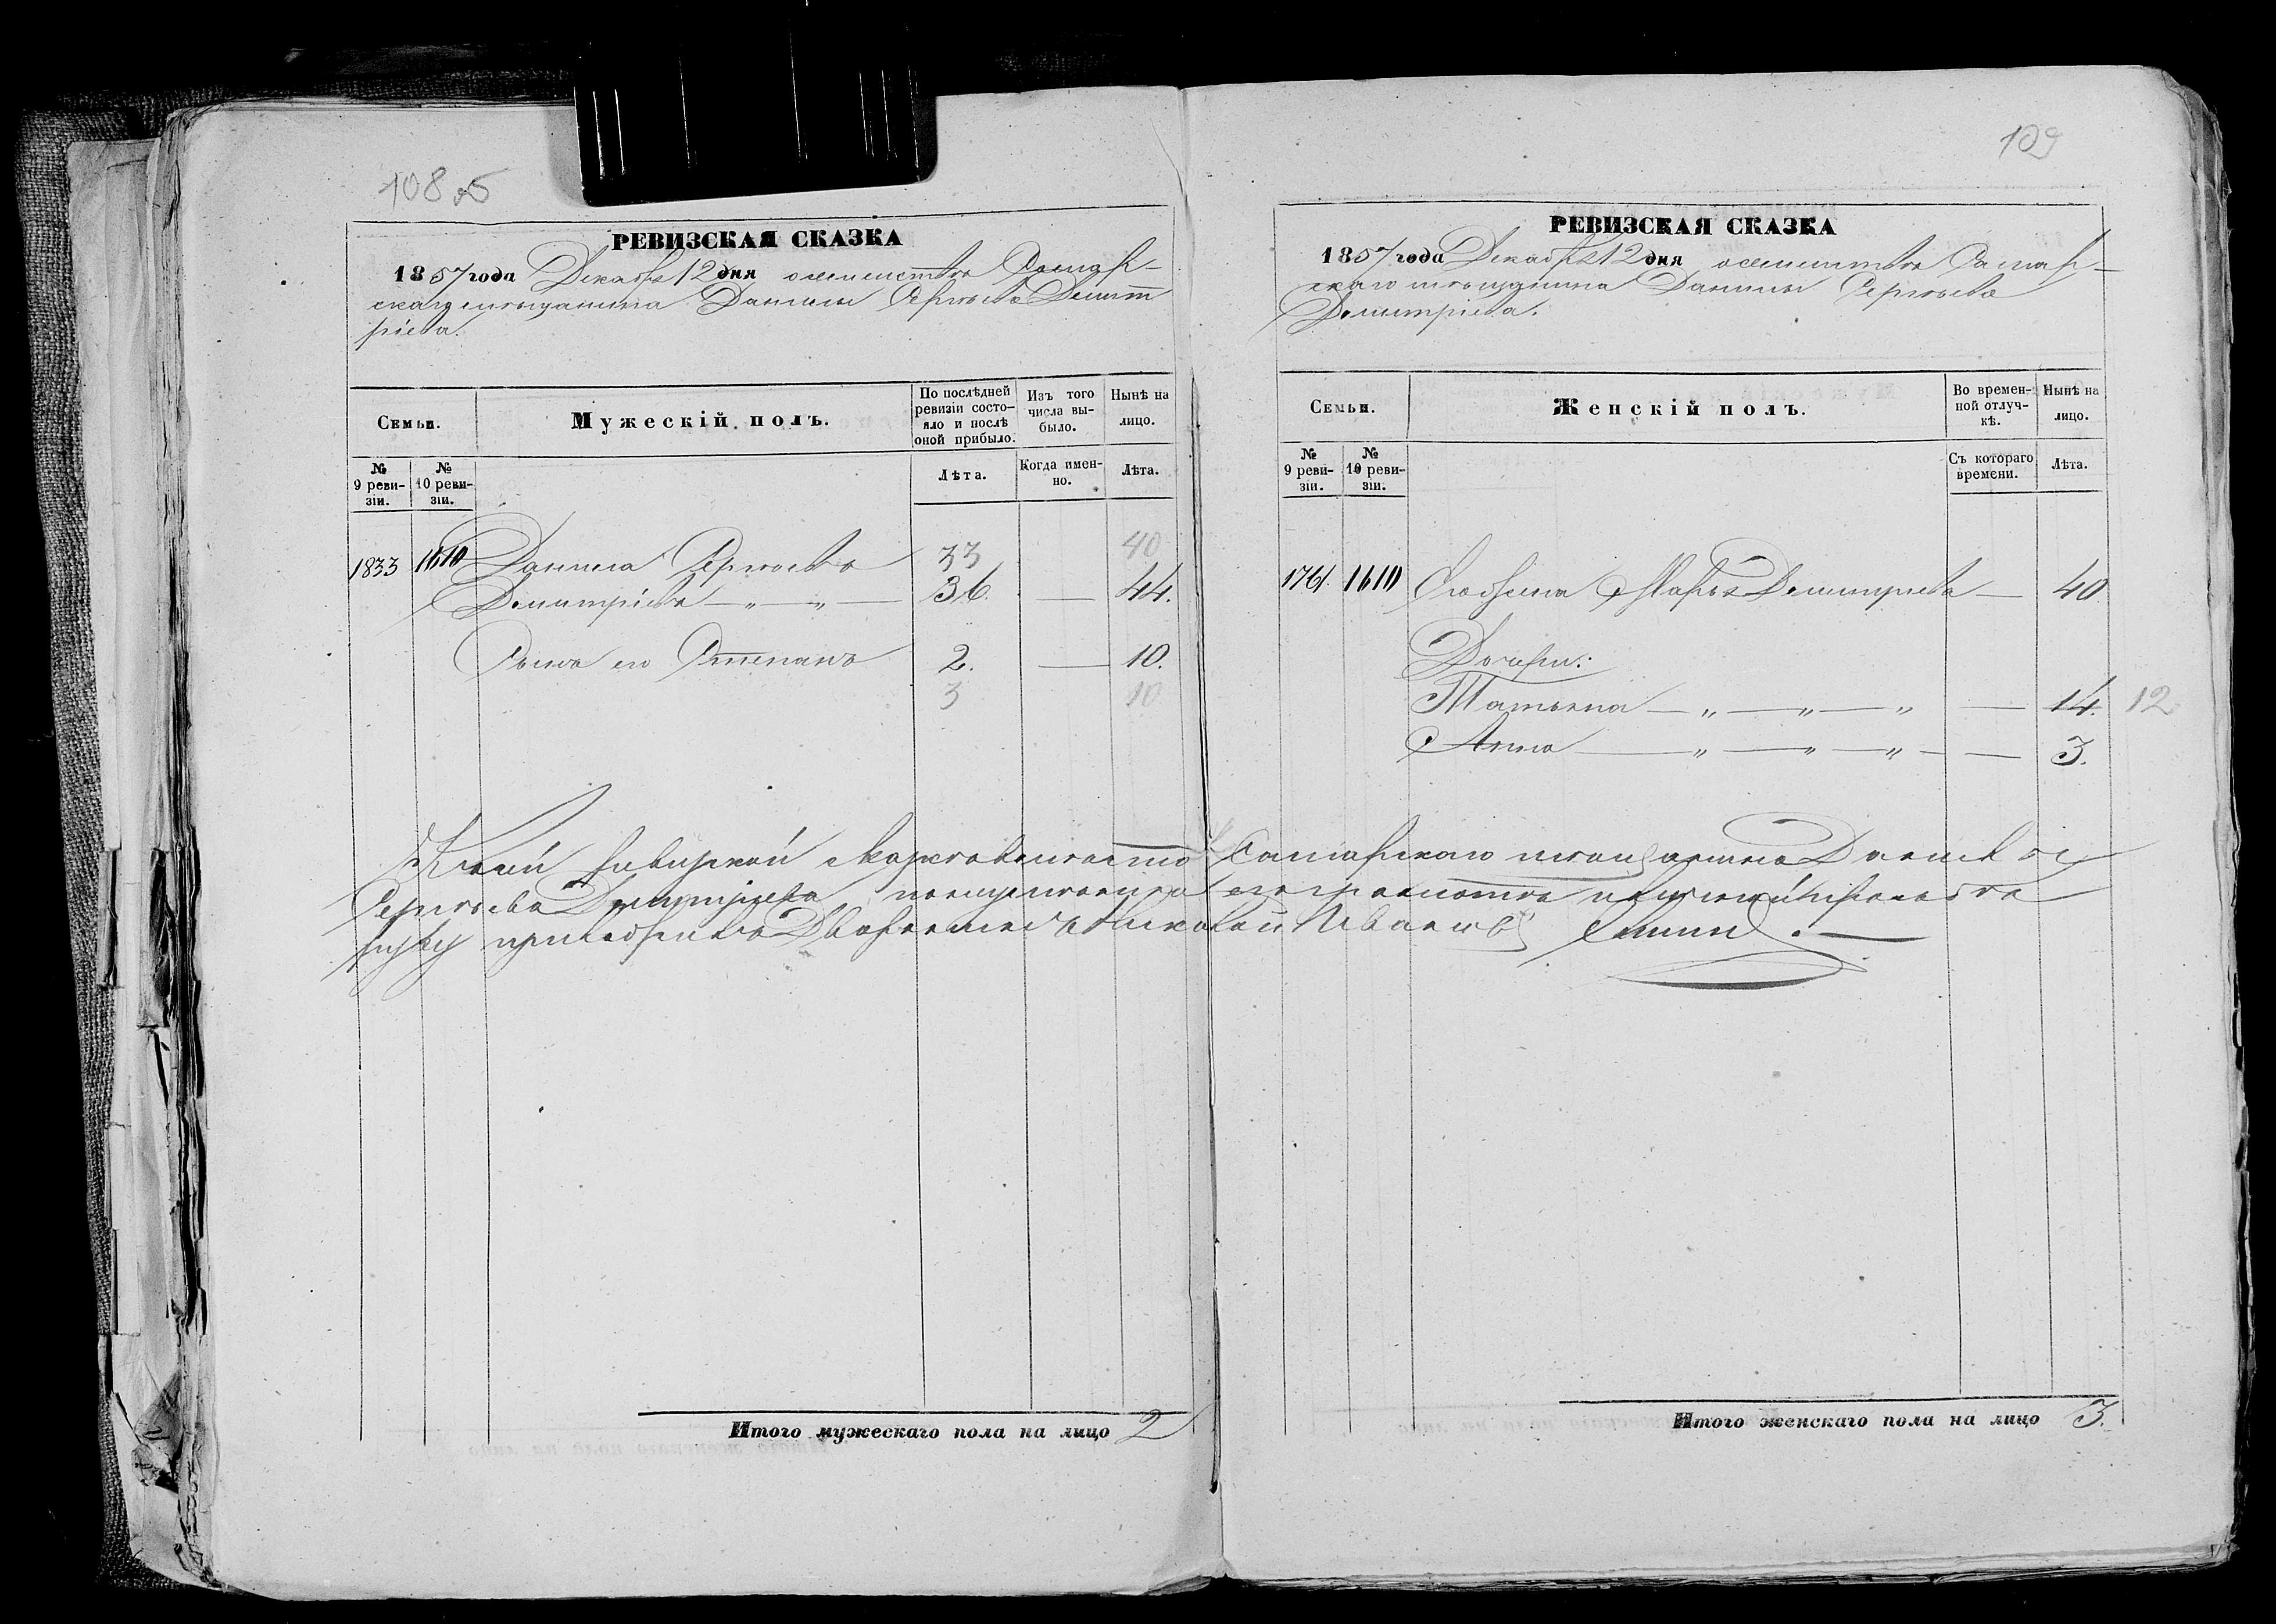 108 об
РЕВИЗСКАЯ СКАЗКА
1857 года Декабря 12 дня о семействѣ Самар-
скаго мѣщанина Данилы Сергѣева Димит
ріева.
Семьи.
Мужескій полъ.
По послѣдней ревизіи состо-
яло и послѣ оной прибыло.
Изъ того числа вы-
было.
Нынѣ на лицо.
№ 9 реви-
зіи.
№ 10 реви-
зіи.
Лѣта.
Когда имен-
но.
Лѣта.
1833 1610 Данила Сергѣевъ 33 40
Димитріевъ — „ — „ — 36. — 44.
Сынъ его Степанъ 2. — 10.
3 10
Итого мужескаго пола на лицо 2
109
РЕВИЗСКАЯ СКАЗКА
1857 года Декабря 12 дня о семействѣ Самар-
скаго мѣщанина Данилы Сергѣева
Димитріева.
Семьи.
Женскій полъ.
Во времен-
ной отлуч-
кѣ.
Нынѣ на лицо.
№ 9 реви-
зіи.
№ 10 реви-
зіи.
Съ котораго времени.
Лѣта.
1761. 1610 Марья Димитріева — 40
Дочери:
Татьяна — „ — „ — „ — 14. 12
Анна — „ — „ — „ — 3.
Къ сей ревизской Самарскаго мѣщанина Данилы
Сергѣева Димитріева
руку приложилъ Иванов
Итого женскаго пола на лицо 3.